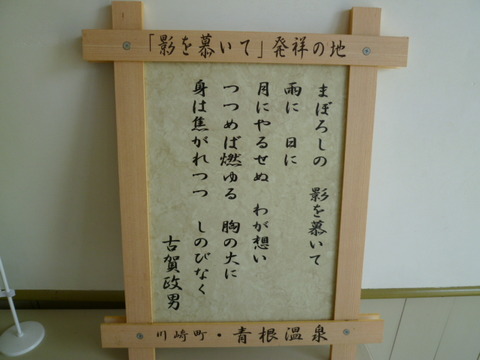 「影を慕いて」発祥の地
まぼろしの　影を慕いて
雨に　日に
月にやるせぬ　わが想い
つつめば燃ゆる　胸の火に
身は焦がれつつ　しのびなく
古賀政男
川崎町・青根温泉